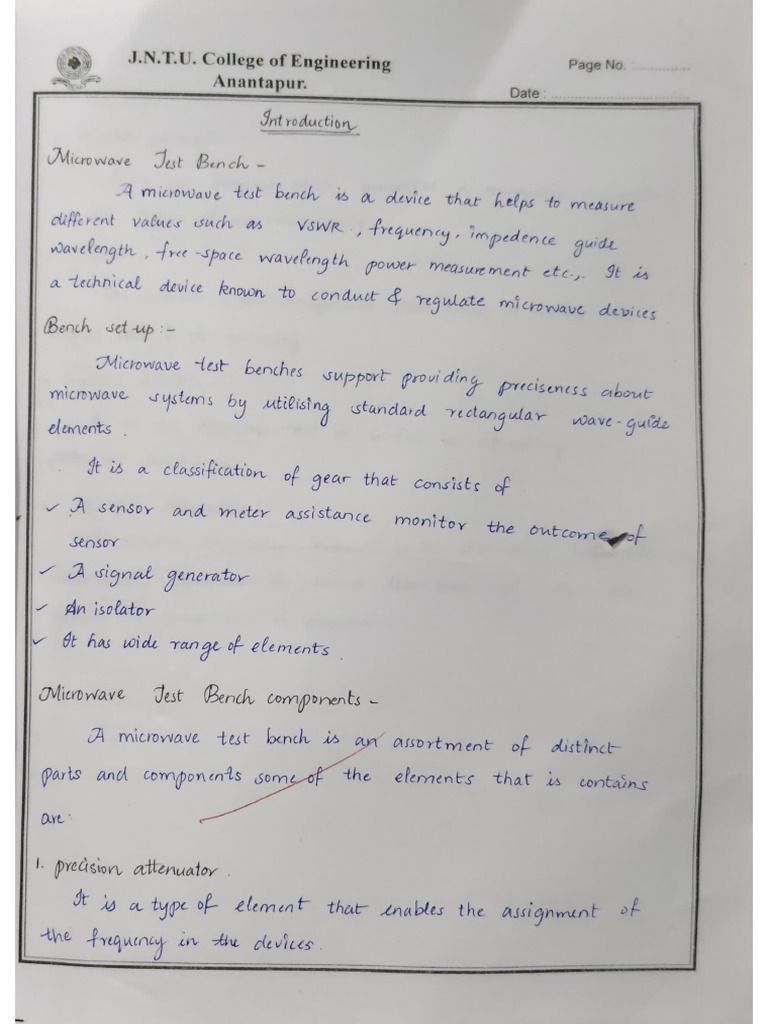 J.N.T.U. College of Engineering
Anantapur.
Page No. :..............
Date : ................................
Introduction
Microwave Test Bench -
A microwave test bench is a device that helps to measure
different values such as VSWR, frequency, impedence guide
wavelength, free-space wavelength power measurement etc.,. It is
a technical device known to conduct & regulate microwave devices
Bench set-up :-
Microwave test benches support providing preciseness about
microwave systems by utilising standard rectangular wave-guide
elements.
It is a classification of gear that consists of
✓ A sensor and meter assistance monitor the outcome of
sensor
✓ A signal generator
✓ An isolator
✓ It has wide range of elements.
Microwave Test Bench components -
A microwave test bench is an assortment of distinct
parts and components some of the elements that is contains
are:
1. precision attenuator.
It is a type of element that enables the assignment of
the frequency in the devices.